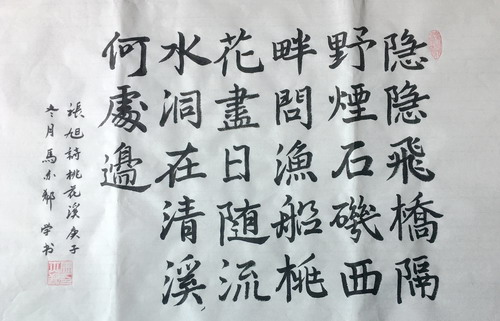 隐隐飛橋隔
野煙石磯西
畔問漁船桃
花盡日随流
水洞在清溪
何處邊
張旭詩桃花溪庚子
冬月馬亦 学书